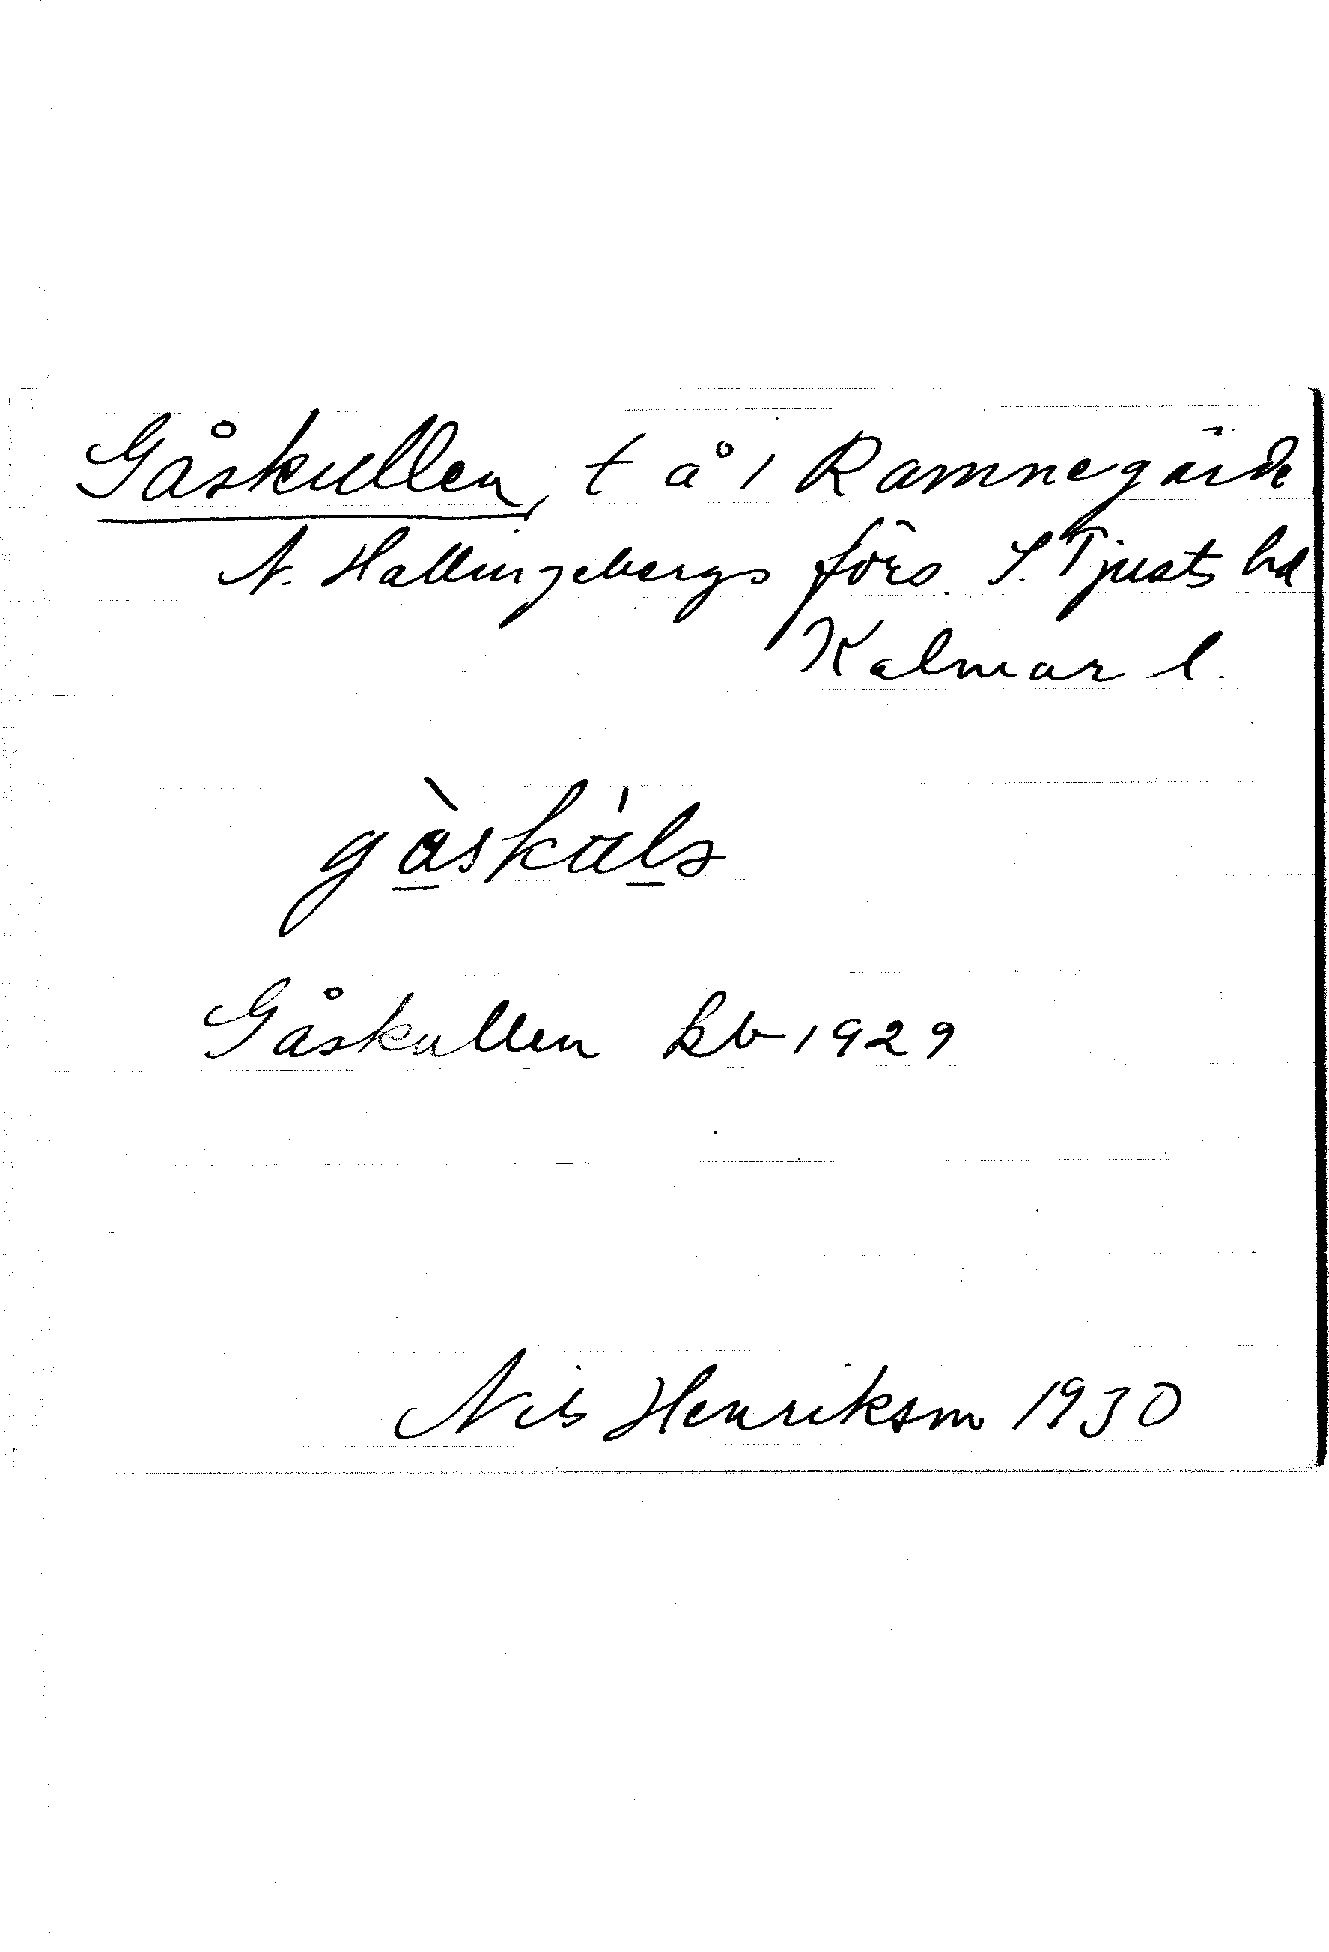 Gåskullen, t å 1 Ramnegärde
N. Hallingebergs förs. S. Tjusts hd
Kalmar l.
Gåskullen kb 1929
Nils Henrikson 1930